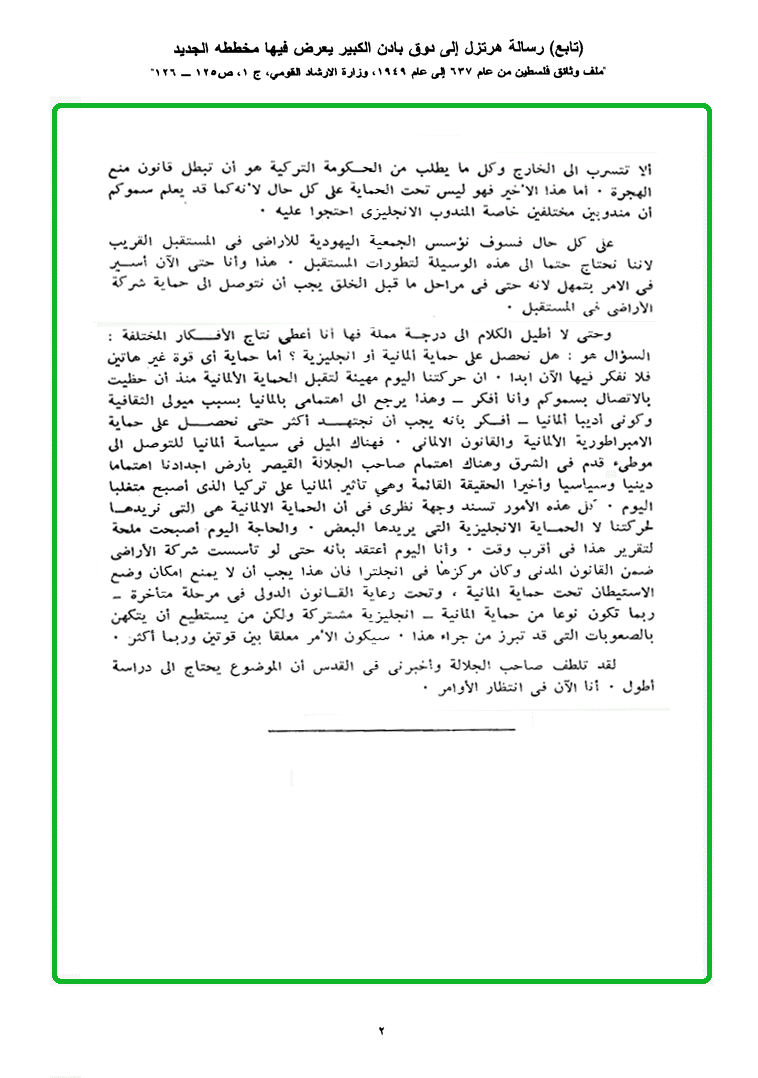 (تابع) رسالة هرتزل إلى دوق بادن الكبير يعرض فيها مخططه الجديد
"ملف وثائق فلسطين من عام ٦٣٧ إلى عام ١٩٤٩، وزارة الارشاد القومي، ج ١، ص١٢٥ ــ ١٢٦"
ألا تتسرب الى الخارج وكل ما يطلب من الحكومة التركية هو أن تبطل قانون منع
الهجرة ٠ أما هذا الأخير فهو ليس تحت الحماية على كل حال لأنه كما قد يعلم سموكم
أن مندوبين مختلفين خاصة المندوب الانجليزى احتجوا عليه ٠
على كل حال فسوف نؤسس الجمعية اليهودية للأراضى فى المستقبل القريب
لاننا نحتاج حتما الى هذه الوسيلة لتطورات المستقبل ٠ هذا وأنا حتى الآن أسير
فى الامر بتمهل لانه حتى فى مراحل ما قبل الخلق يجب أن نتوصل الى حماية شركة
الأراضى فى المستقبل ٠
وحتى لا أطيل الكلام الى درجة مملة فها أنا أعطى نتاج الأفكار المختلفة :
السؤال هو : هل نحصل على حماية ألمانية أو انجليزية ؟ أما حماية أى قوة غير هاتين
فلا نفكر فيها الآن ابدا ٠ ان حركتنا اليوم مهيئة لتقبل الحماية الألمانية منذ أن حظيت
بالاتصال بسموكم وأنا أفكر ــ وهذا يرجع الى اهتمامى بالمانيا بسبب ميولى الثقافية
وكونى أديبا ألمانيا ــ أفكر بأنه يجب أن نجتهد أكثر حتى نحصل على حماية
الامبراطورية الألمانية والقانون الالمانى ٠ فهناك الميل فى سياسة ألمانيا للتوصل الى
موطىء قدم فى الشرق وهناك اهتمام صاحب الجلالة القيصر بأرض اجدادنا اهتماما
دينيا وسياسيا وأخيرا الحقيقة القائمة وهى تأثير ألمانيا على تركيا الذى أصبح متغلبا
اليوم ٠ كل هذه الأمور تسند وجهة نظرى فى أن الحماية الالمانية هى التى نريدها
لحركتنا لا الحماية الانجليزية التى يريدها البعض ٠ والحاجة اليوم أصبحت ملحة
لتقرير هذا فى أقرب وقت ٠ وأنا اليوم أعتقد بأنه حتى لو تأسست شركة الأراضى
ضمن القانون المدنى وكان مركزها فى انجلترا فان هذا يجب أن لا يمنع إمكان وضع
الاستيطان تحت حماية المانية ، وتحت رعاية القانون الدولى فى مرحلة متأخرة ــ
ربما تكون نوعا من حماية المانية ــ انجليزية مشتركة ولكن من يستطيع أن يتكهن
بالصعوبات التى قد تبرز من جراء هذا ٠ سيكون الأمر معلقا بين قوتين وربما أكثر ٠
لقد تلطف صاحب الجلالة وأخبرنى فى القدس أن الموضوع يحتاج الى دراسة
أطول ٠ أنا الآن فى انتظار الأوامر ٠
٢